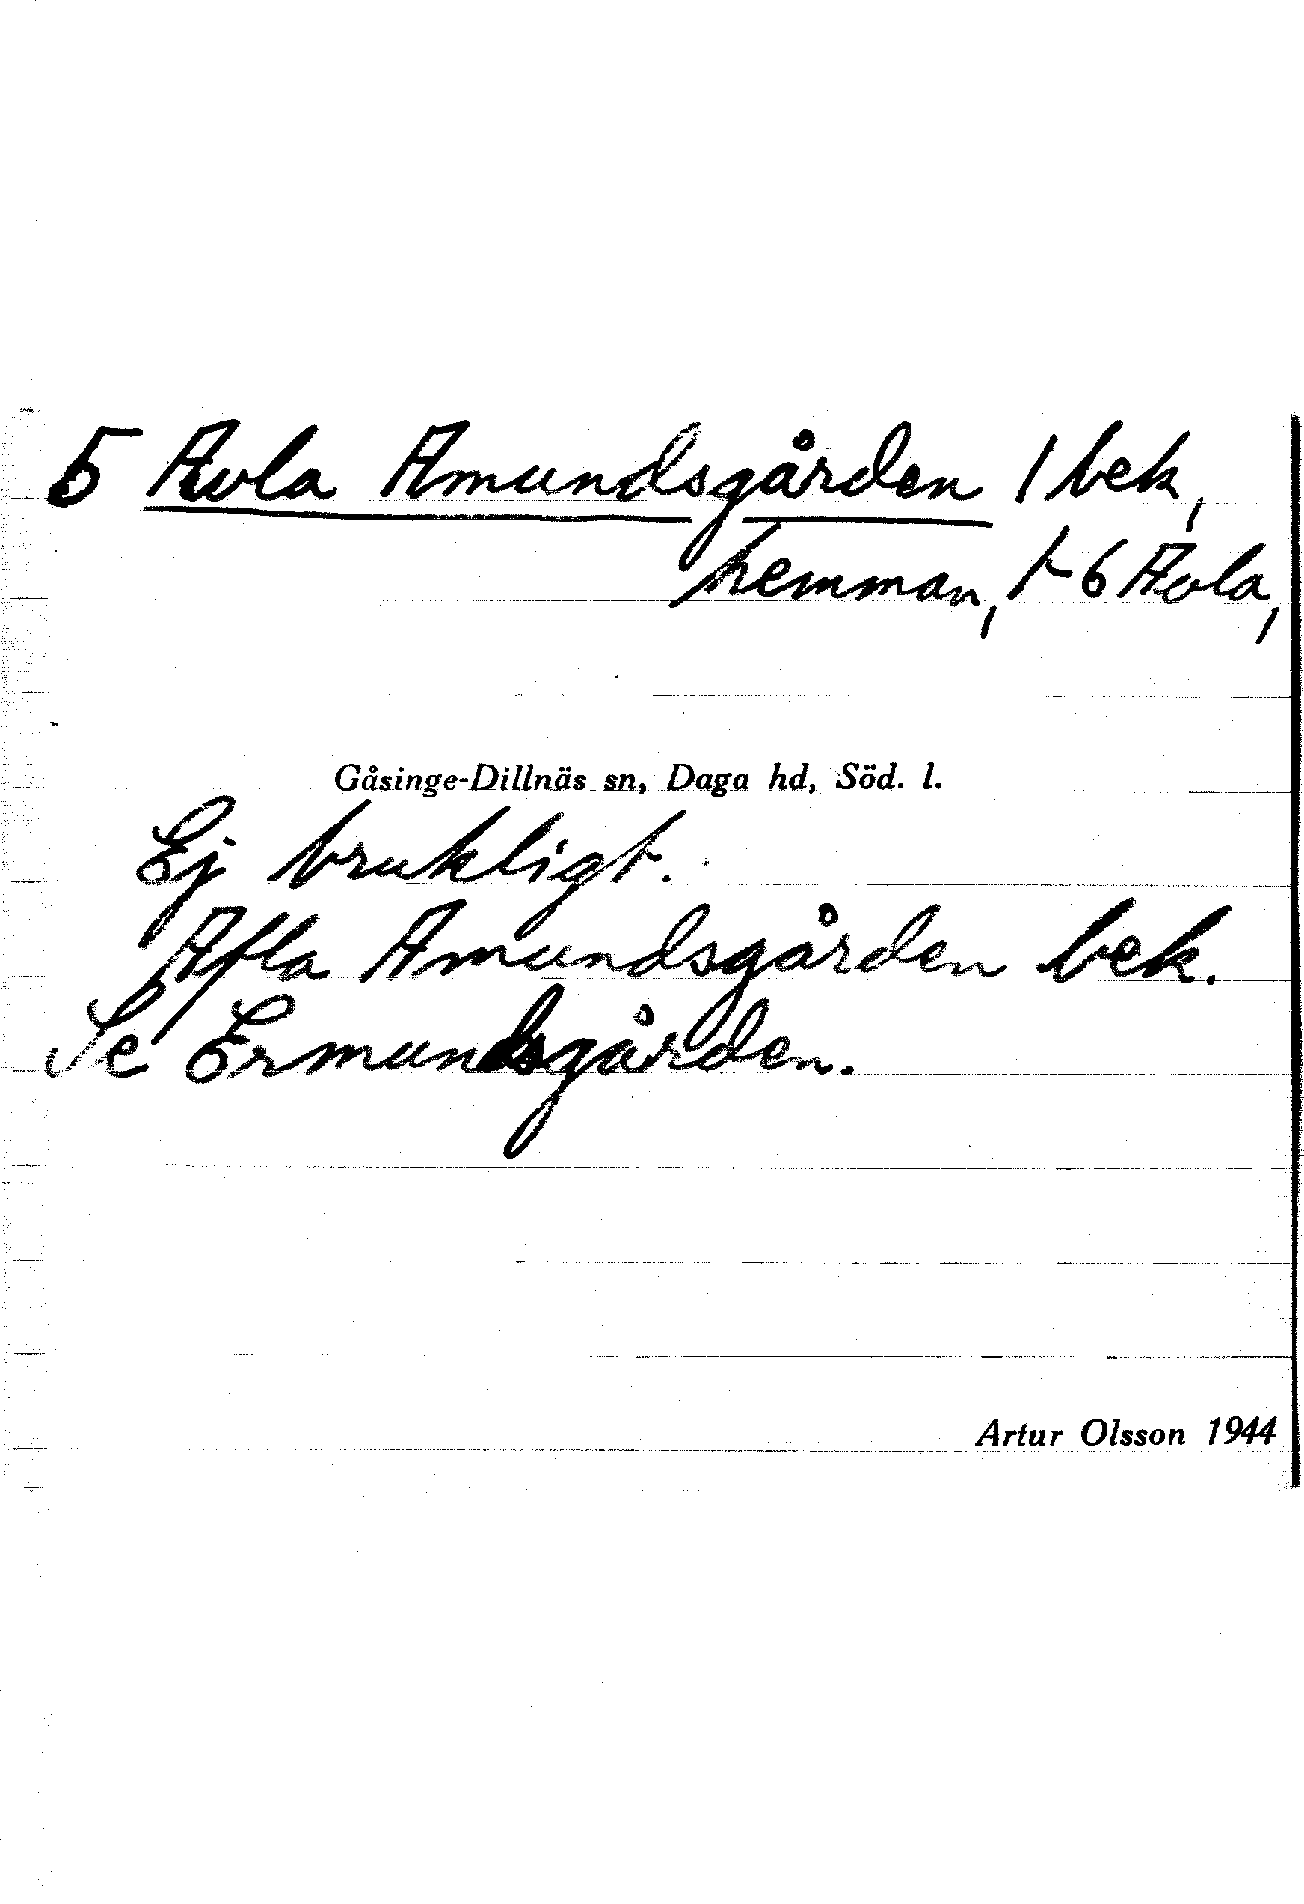 5 Avla Amundsgården / bek,
hemman, 1-6 Avla,
Gåsinge-Dillnäs sn, Daga hd, Söd. l.
Ej brukligt.
Afla Amundsgården bek.
Se Ermundsgården.
Artur Olsson 1944